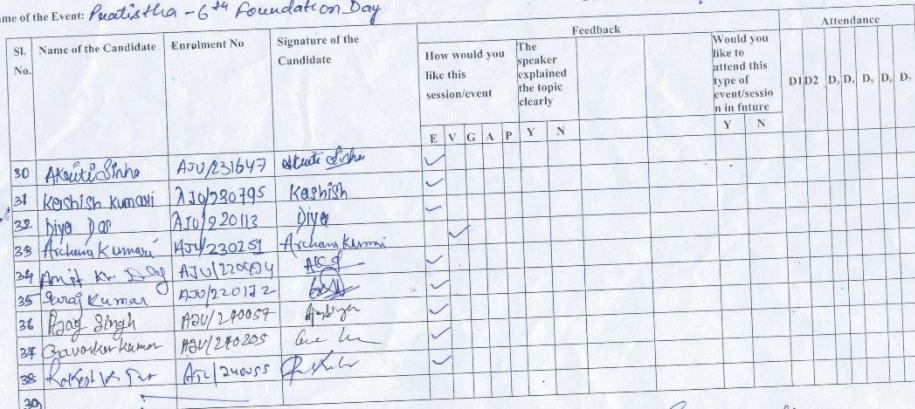 me of the Event: Pratistha - 6th Foundation Day
Sl. No. Name of the Candidate Enrolment No Signature of the Candidate Feedback Attendance
How would you like this session/event The speaker explained the topic clearly Would you like to attend this type of event/sessio n in future D1 D2 D, D, D, D, D,
E V G A P Y N Y N
30 Akriti Sinha AJU/231647 Akriti Sinha ✓
31 Kashish Kumari AJU/230795 Kashish ✓
32 Diya Das AJU/220113 Diya ✓
33 Archana Kumari AJU/230251 Archana Kumari ✓
34 Amit Kr. AJU/ ✓
35 Suraj Kumar AJU/220172 ✓
36 Singh AJU/240057 ✓
37 Kumar AJU/240205 ✓
38 AJU/240055 ✓
39